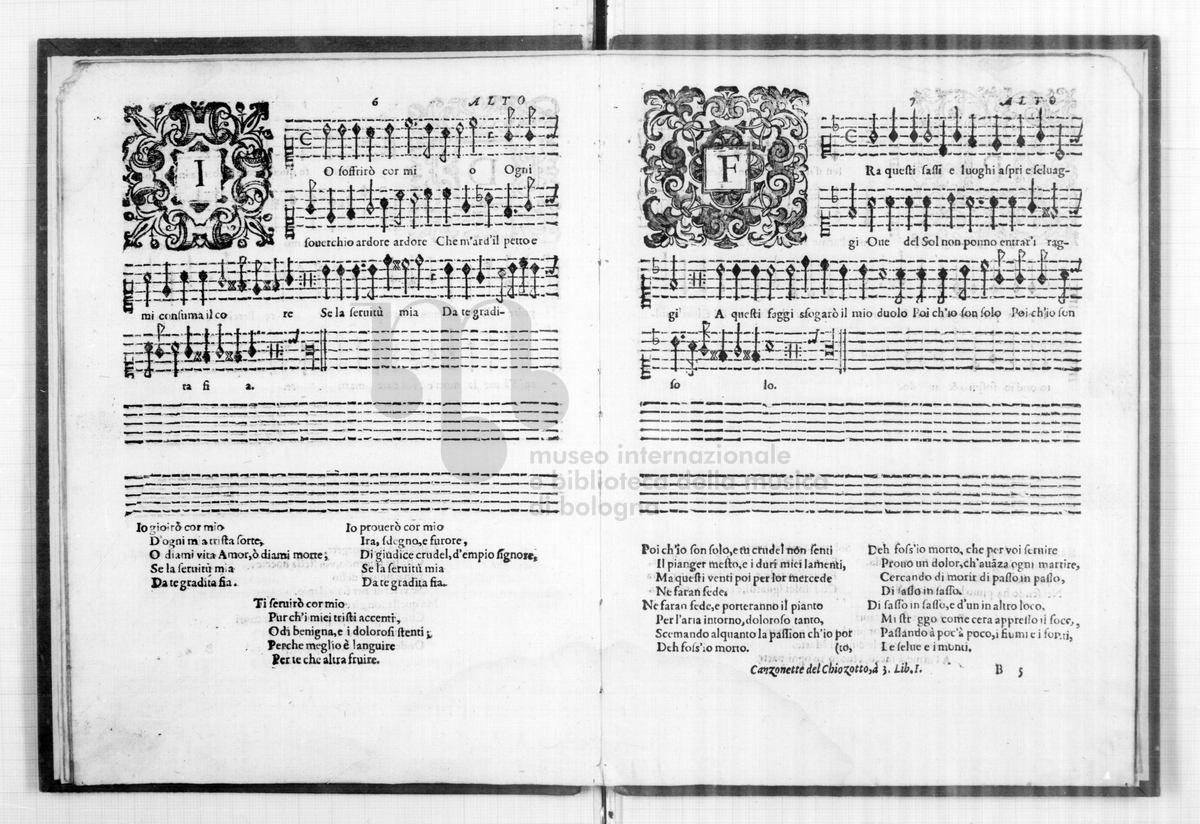 6 ALTO
I
O soffrirò cor mi o Ogni
souerchio ardore ardore Che m'ard'il petto e
mi consuma il co re Se la seruitù mia Da te gradi-
ta fi a.
Io gioirò cor mio
D'ogni mia trista sorte,
O diami vita Amor, ò diami morte;
Se la seruitù mia
Da te gradita fia.
Io prouerò cor mio
Ira, sdegno, e furore,
Di giudice crudel, d'empio signore,
Se la seruitù mia
Da te gradita fia.
Ti seruirò cor mio
Pur ch'i miei tristi accenti,
Odi benigna, e i dolorosi stenti;
Perche meglio è languire
Per te che altra fruire.
7 ALTO
F
Ra questi sassi e luoghi aspri e seluag-
gi Oue del Sol non ponno entrar'i rag-
gi' A questi faggi sfogarò il mio duolo Poi ch'io son solo Poi ch'io son
so lo.
Poi ch'io son solo, e tu crudel non senti
Il pianger mesto, e i duri miei lamenti,
Ma questi venti poi per lor mercede
Ne faran fede.
Ne faran fede, e porteranno il pianto
Per l'aria intorno, doloroso tanto,
Scemando alquanto la passion ch'io por
Deh foss'io morto. (to,
Deh foss'io morto, che per voi seruire
Prono un dolor, ch'auãza ogni martire,
Cercando di morir di passo in passo,
Di sasso in sasso.
Di sasso in sasso, e d'un in altro loco,
Mi str ggo come cera appresso il foce,
Passando à poc'à poco, i fiumi e i fonti,
Le selue e i monti.
Canzonette del Chiozotto, à 3. Lib. I. B 5
museo internazionale
e biblioteca della musica
di bologna